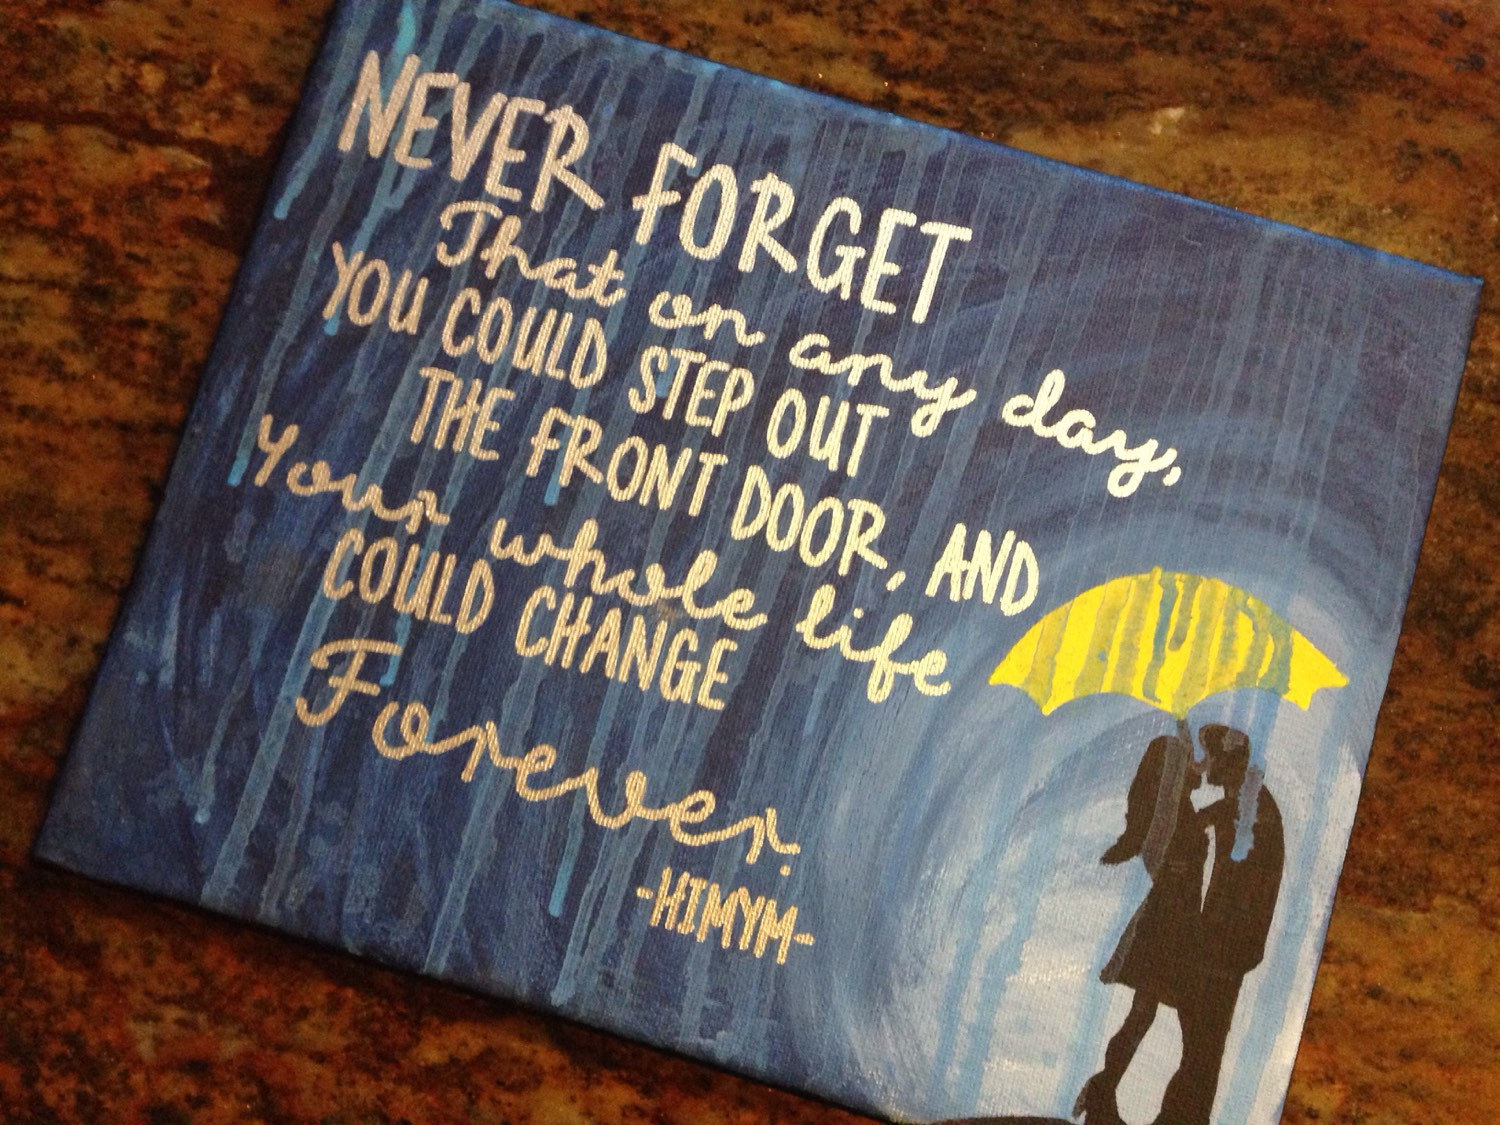 NEVER FORGET
That on any day,
YOU COULD STEP OUT
THE FRONT DOOR, AND
Your whole life
COULD CHANGE
Forever.
-HIMYM-